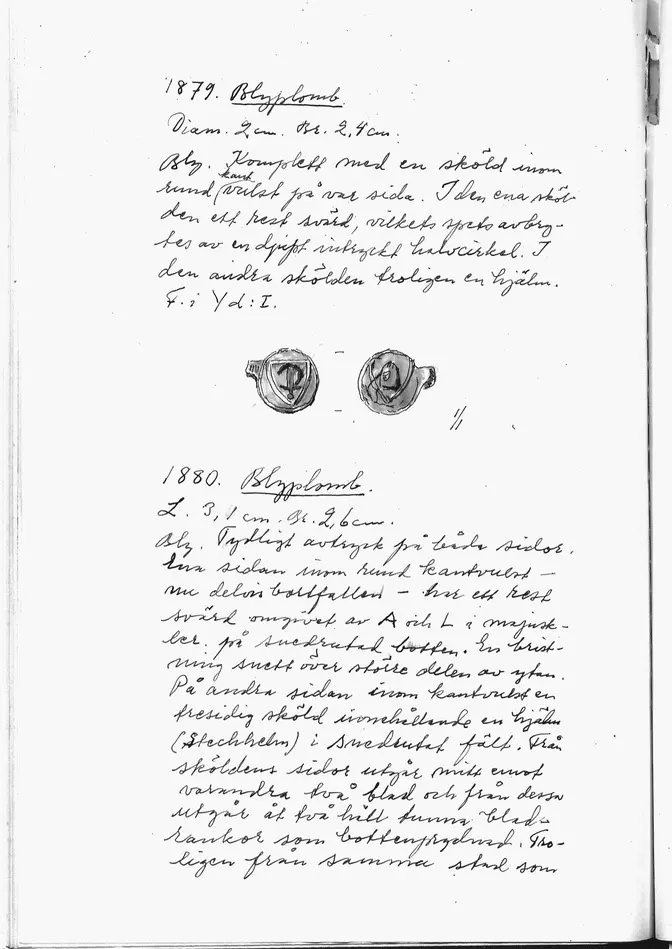 1879. Blyplomb.
Diam. 2 cm. Br. 2,4 cm.
Bly. Komplett med en sköld inom
rund (kant)vulst på var sida. I den ena sköl-
den ett rest svärd, vilkets spets avbry-
tes av en djupt intryckt halvcirkel. I
den andra skölden troligen en hjälm.
F. i Yd: I.
1/1
1880. Blyplomb.
L. 3,1 cm. Br. 2,6 cm.
Bly. Tydligt avtryck på båda sidor.
Ena sidan inom rund kantvulst –
nu delvis bortfallen – har ett rest
svärd omgivet av A och L i majusk-
ler. på snedrutad botten. En brist-
ning snett över större delen av ytan.
På andra sidan inom kantvulst en
tresidig sköld innehållande en hjälm
(Stechhelm) i snedrutat fält. Från
sköldens sidor utgår mitt emot
varandra två blad och från dessa
utgår åt två håll tunna blad-
rankor som bottenprydnad. Tro-
ligen från samma stad som